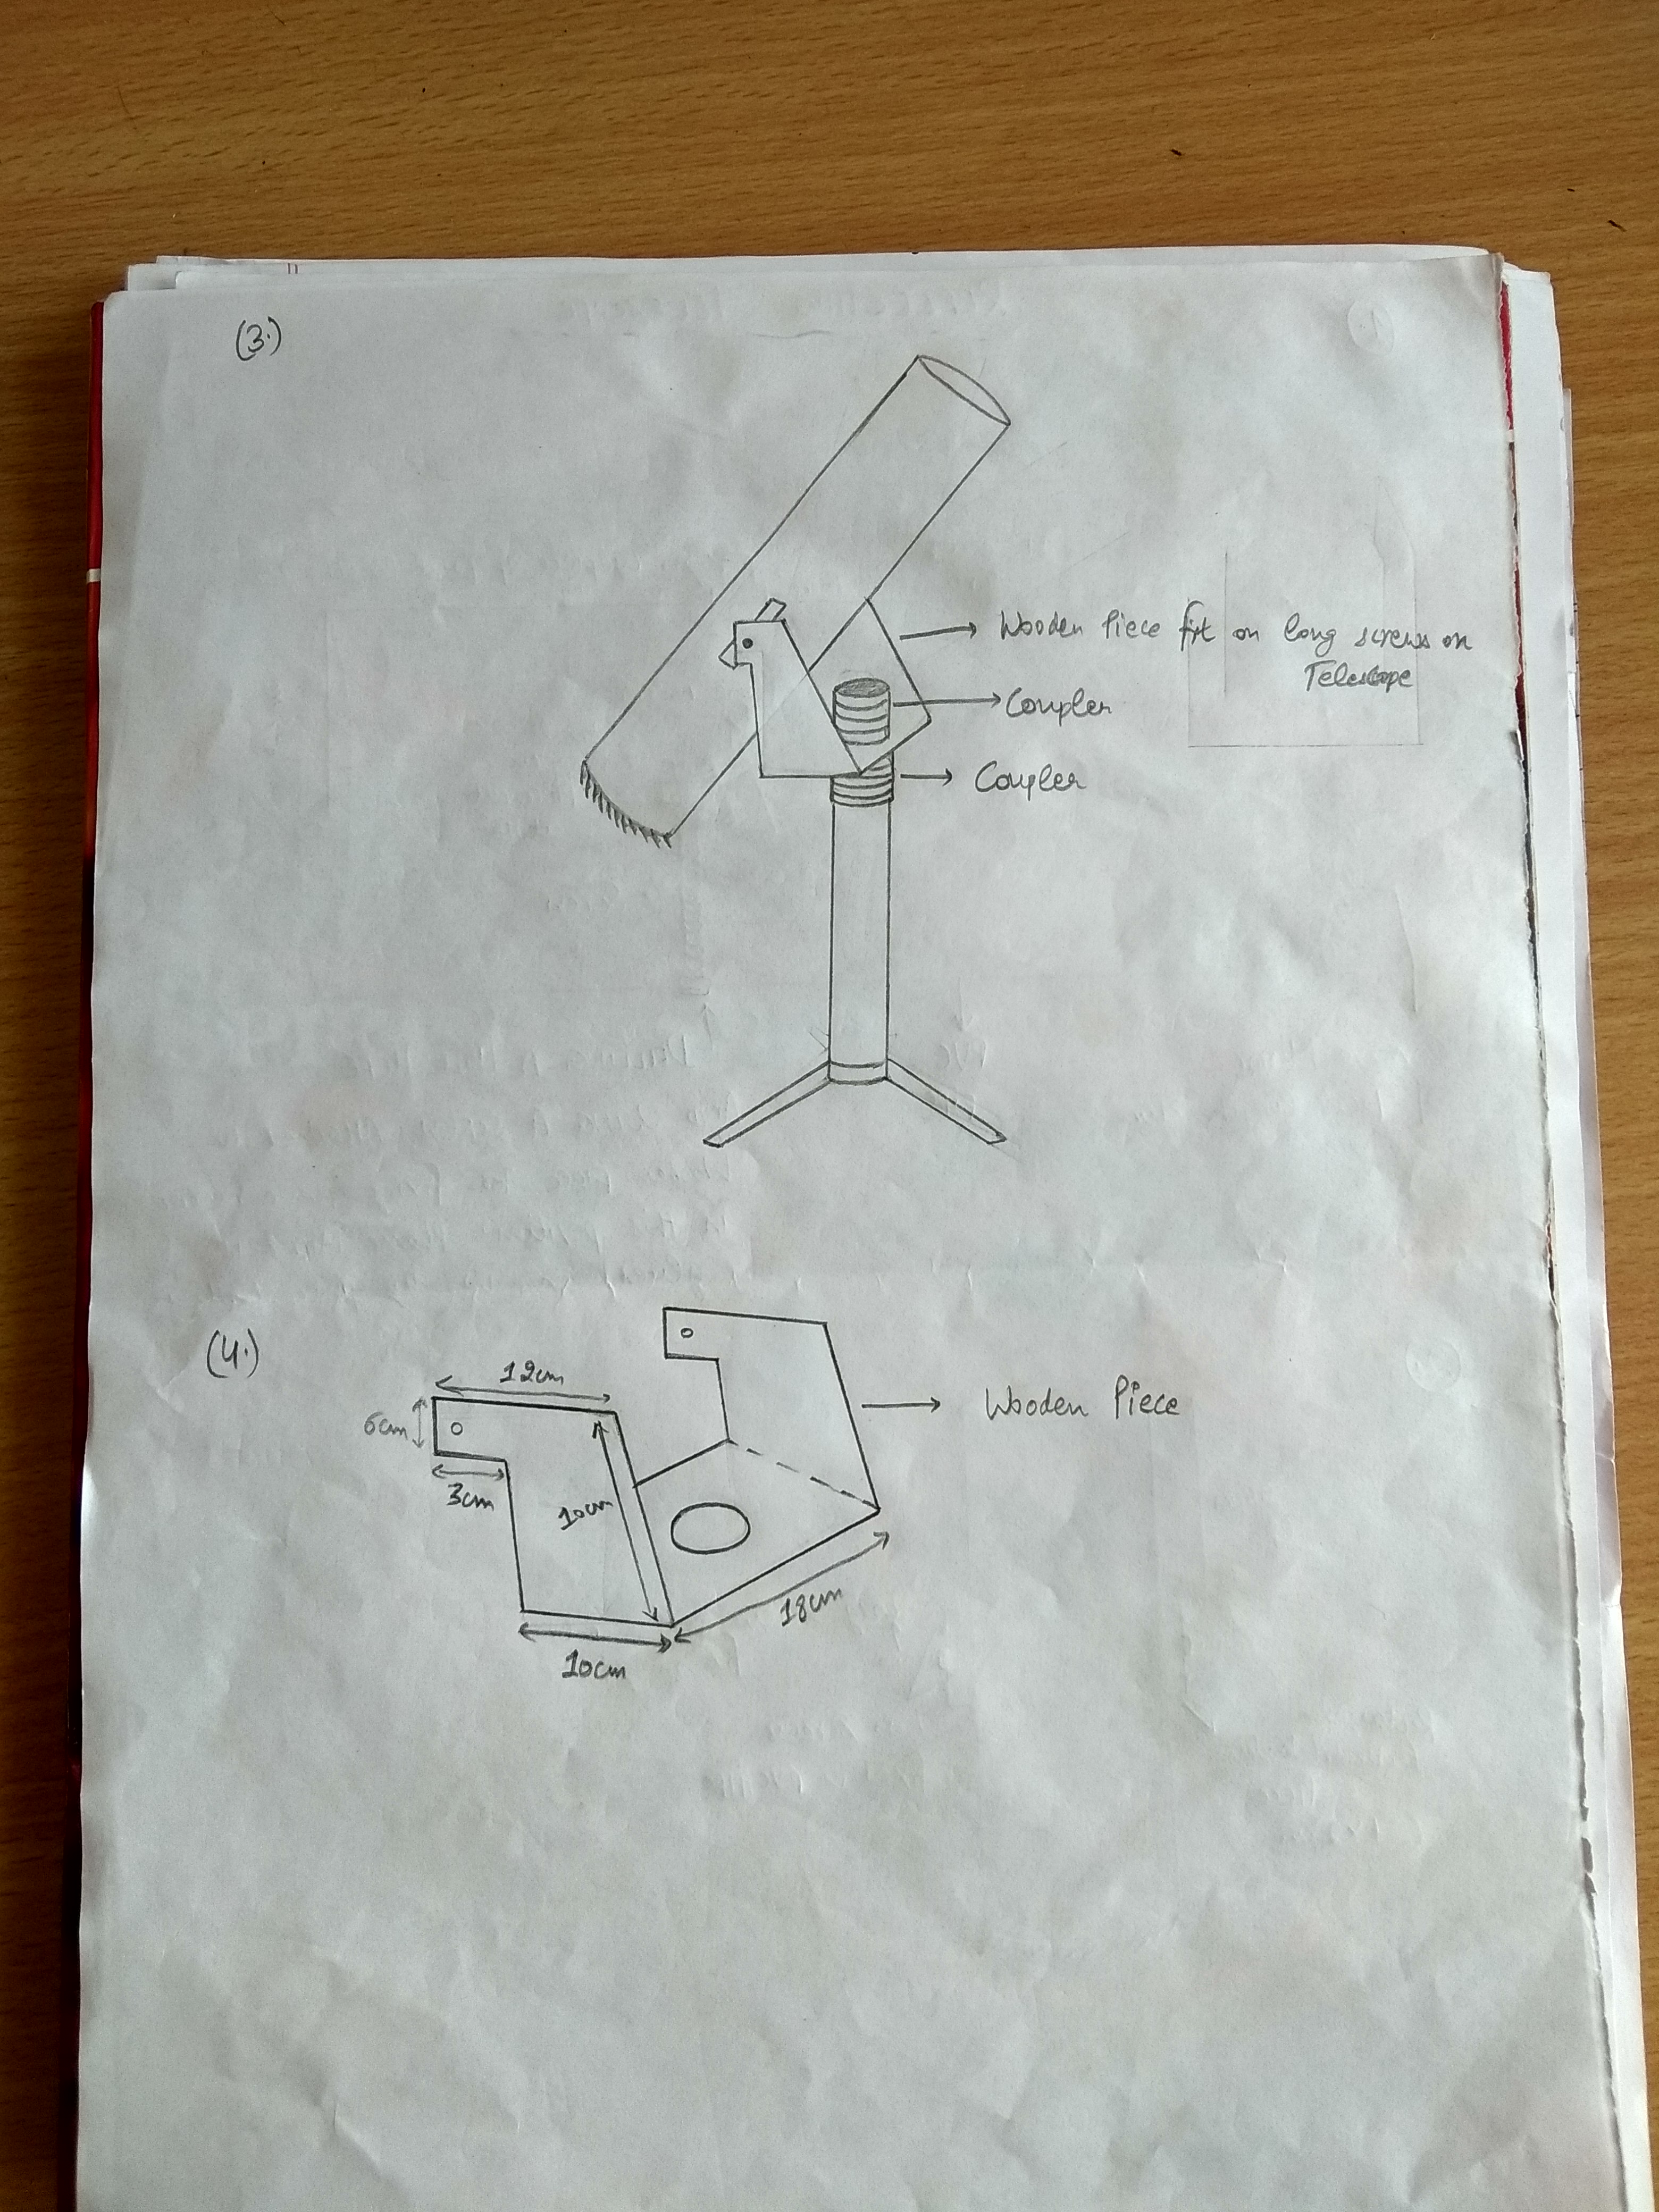 (3.)
Wooden Piece fit on long screws on
Telescope
Coupler
Coupler
(4.)
12cm
6cm
3cm
10cm
Wooden Piece
18cm
10cm